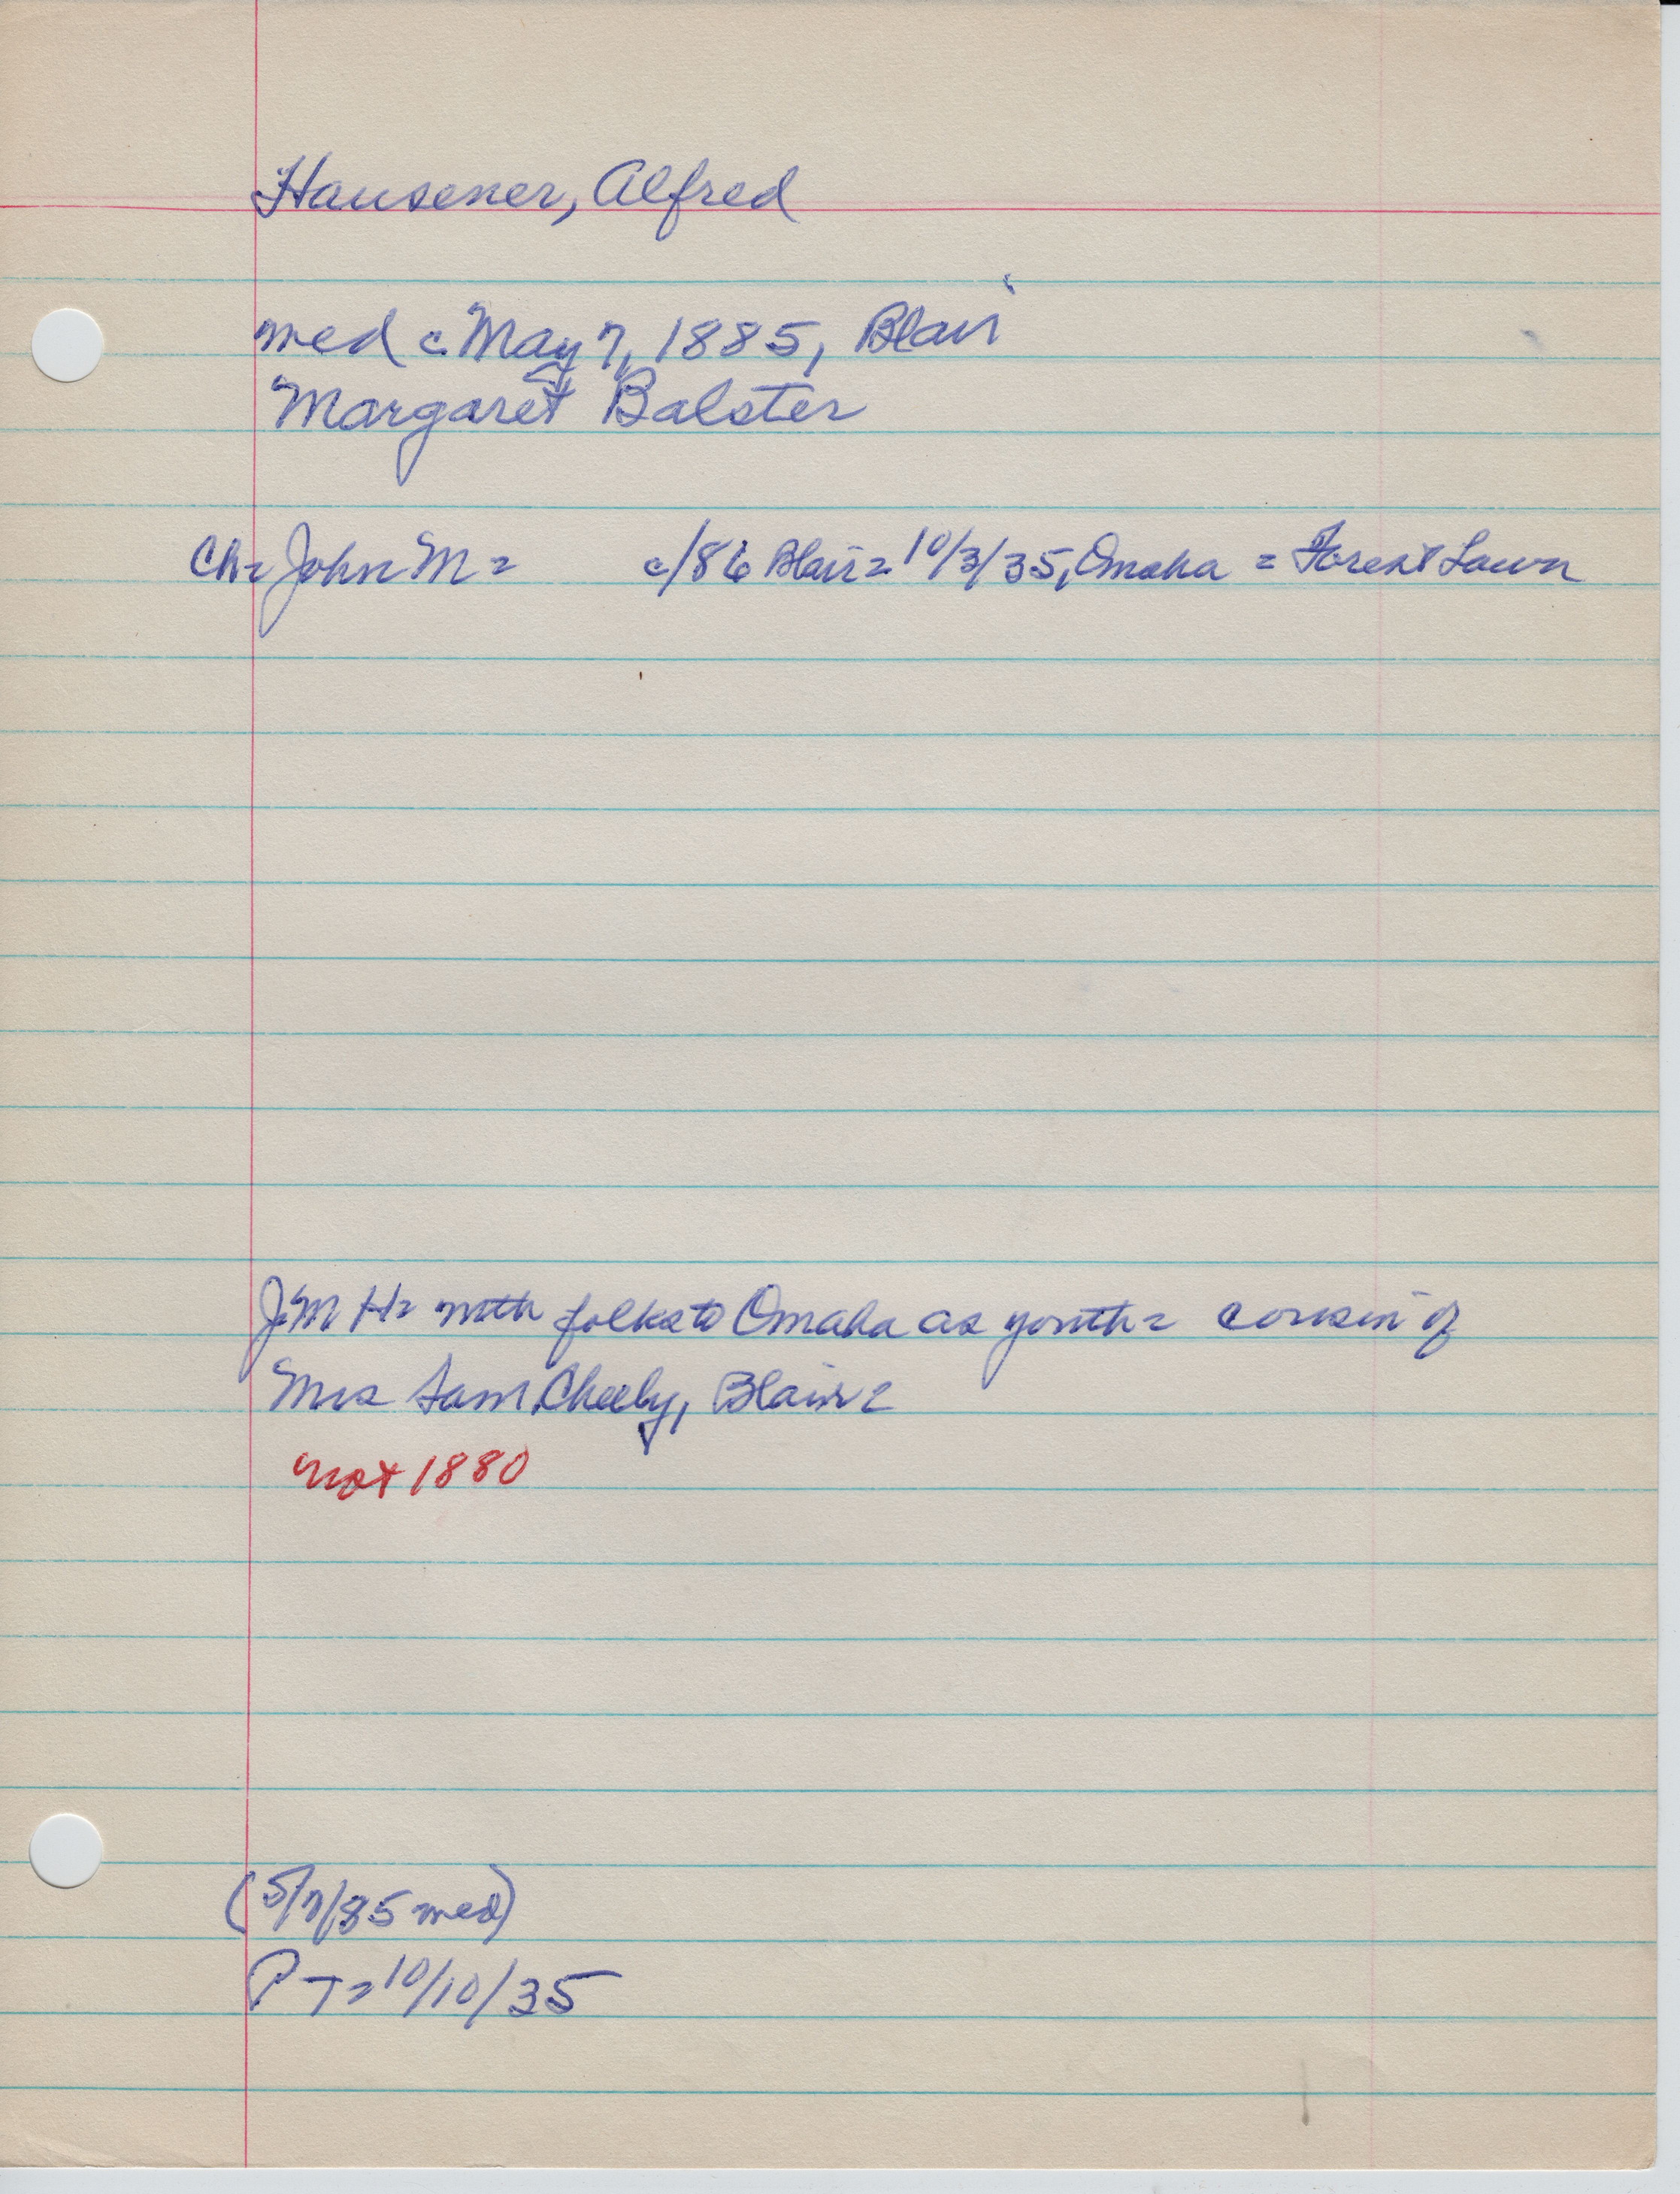 Hausener, Alfred
med c May 7, 1885, Blair
Margaret Balster
Ch= John M = c/86 Blair = 10/3/35, Omaha = Forest Lawn
J M H = with folks to Omaha as youth = cousin of
Mrs Sam Cheely, Blair =
not 1880
(5/7/85 med)
PT = 10/10/35